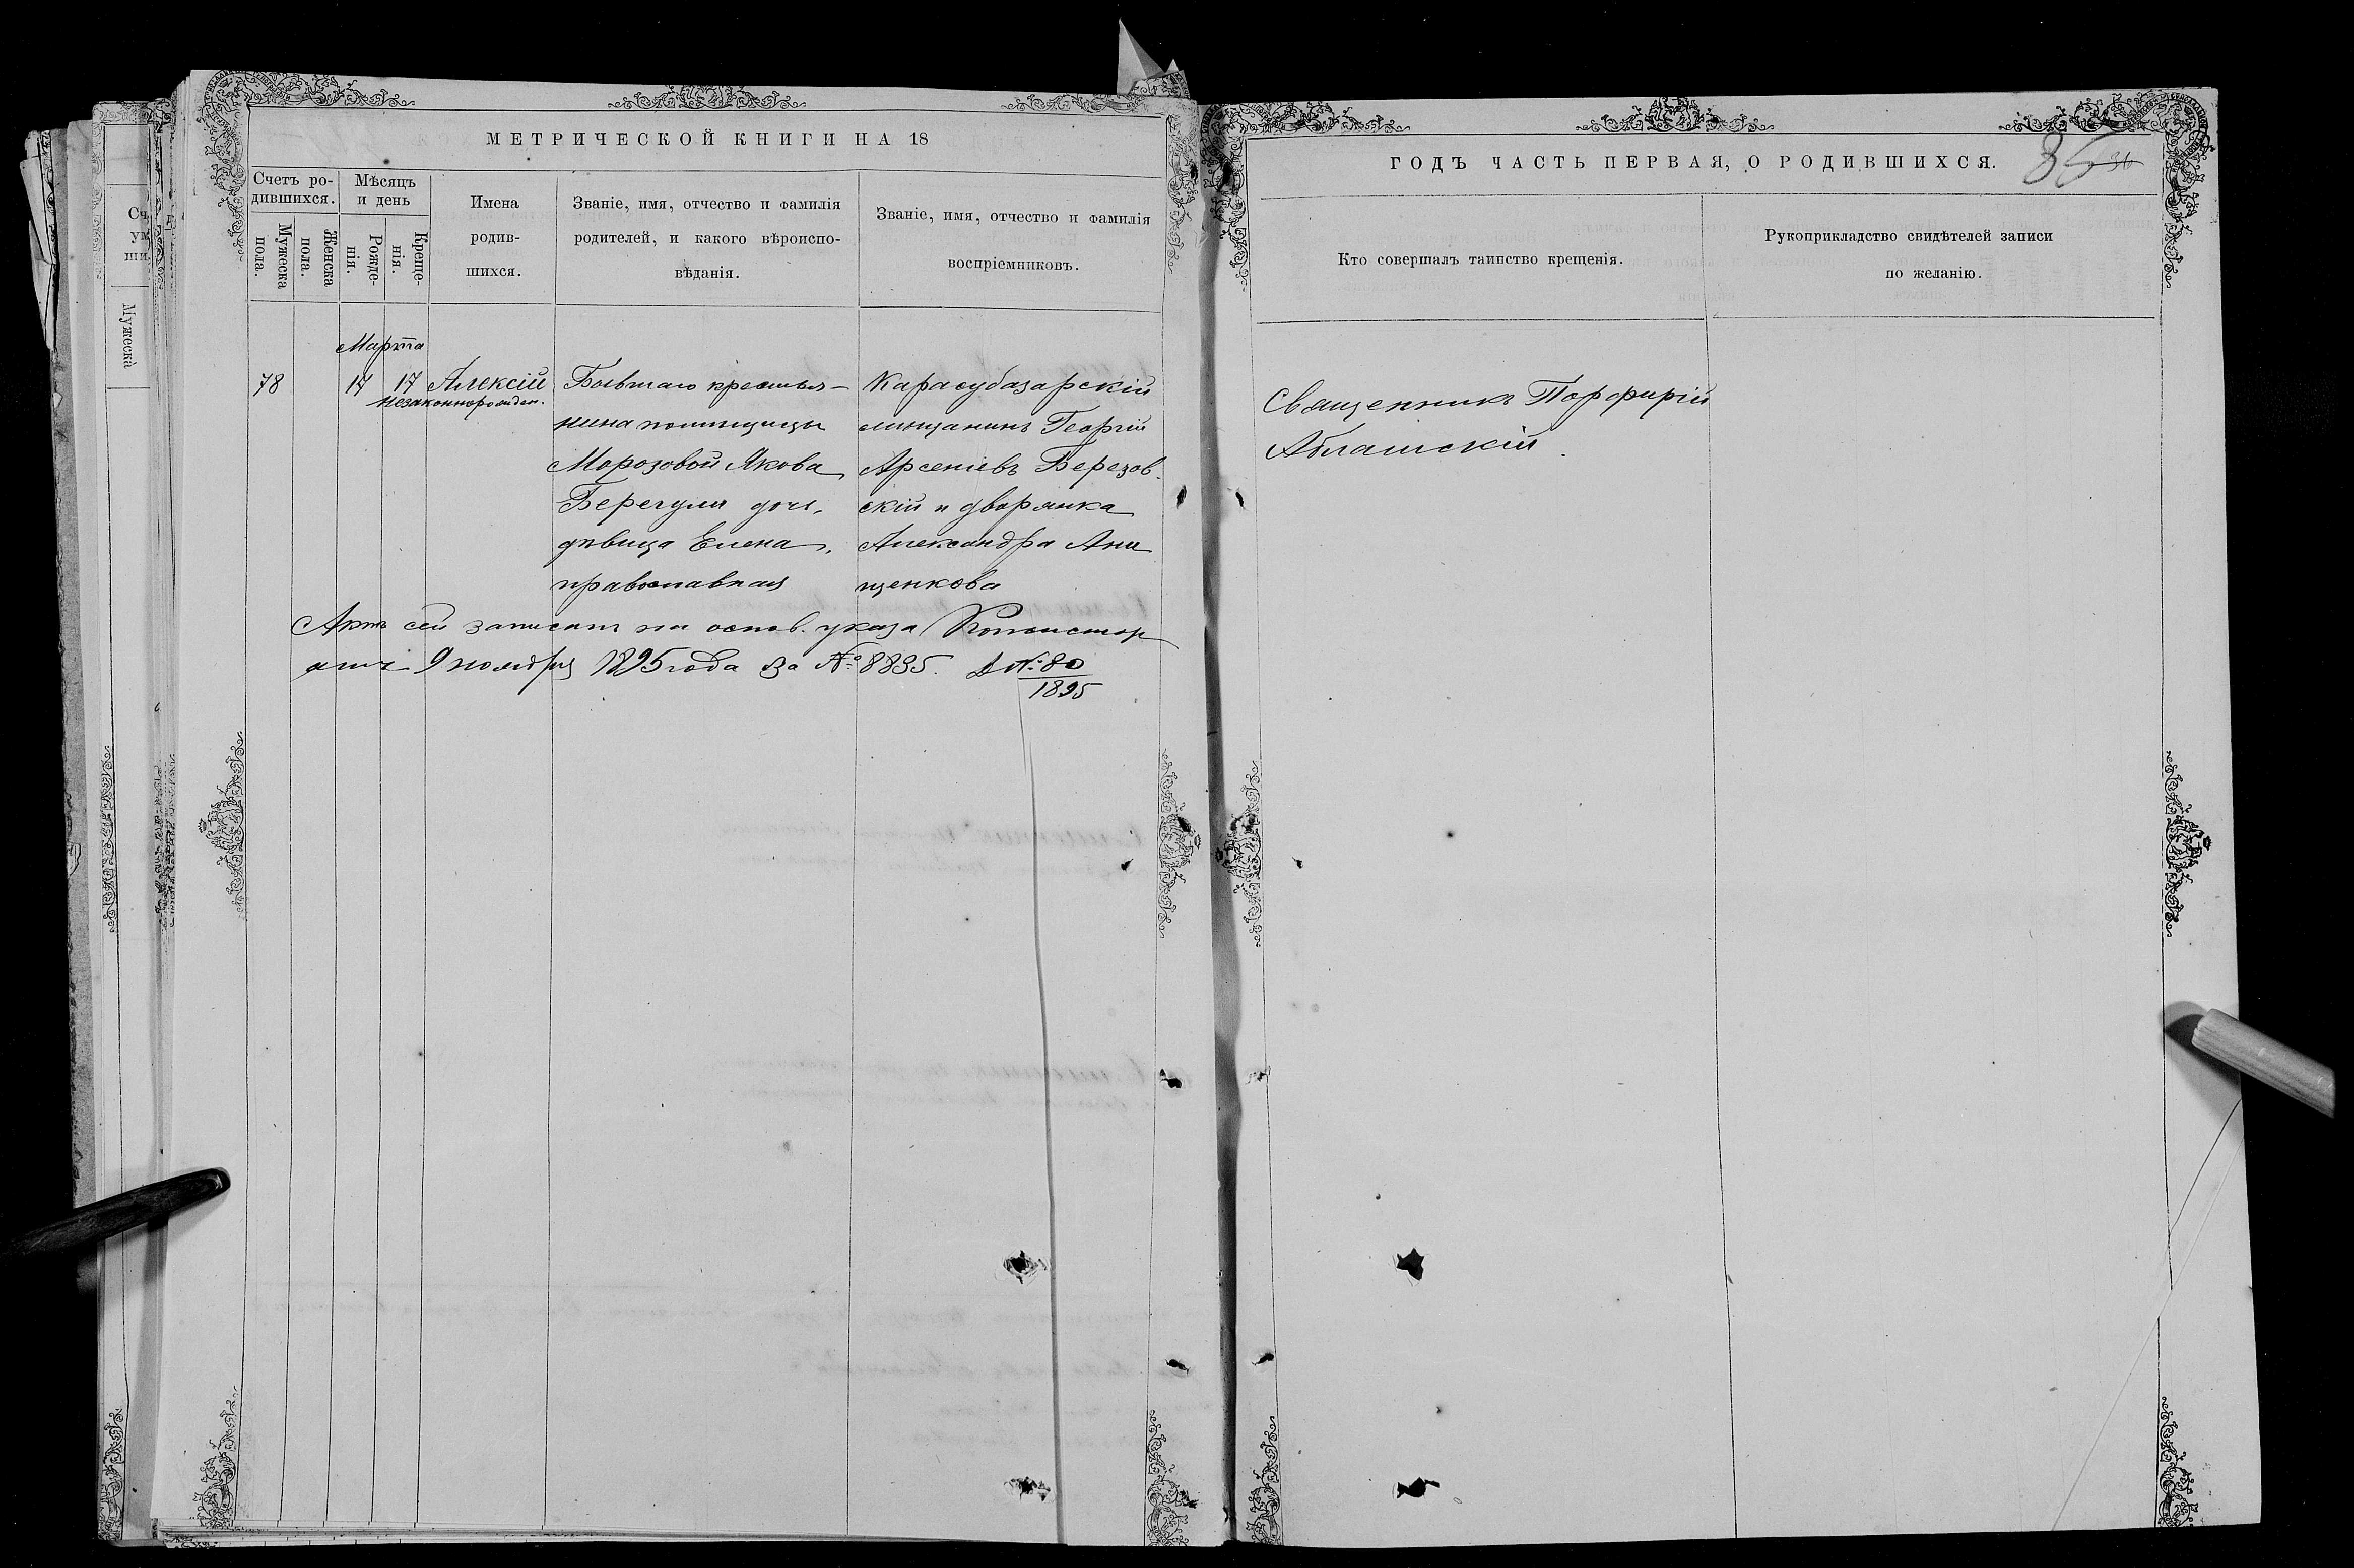 МЕТРИЧЕСКОЙ КНИГИ НА 18
Счетъ ро-
дившихся.
Мужеска
пола.
Женска
пола.
Мѣсяцъ
и день
Рожде-
нія.
Креще-
нія.
Имена
родив-
шихся.
Званіе, имя, отчество и фамилія
родителей, и какого вѣроиспо-
вѣданія.
Званіе, имя, отчество и фамилія
воспріемниковъ.
Марта
78
17
17
Алексій
незаконнорожден.
Бывшаго крестья-
нина помѣщицы
Морозовой Якова
дочь,
дѣвица Елена,
православная
Карасубазарскій
мѣщанинъ Георгій
Арсеніевъ Березов
скій и дворянка
Александра Они
щенкова
Актъ сей записанъ на основ. указа Консистор
9 ноября 1895 года за № 8835. Д № 80
1895
ГОДЪ ЧАСТЬ ПЕРВАЯ, О РОДИВШИХСЯ.
35
36
Кто совершалъ таинство крещенія.
Рукоприкладство свидѣтелей записи
по желанію.
Священникъ Порфирій
Сч
ум
ши
Мужеска